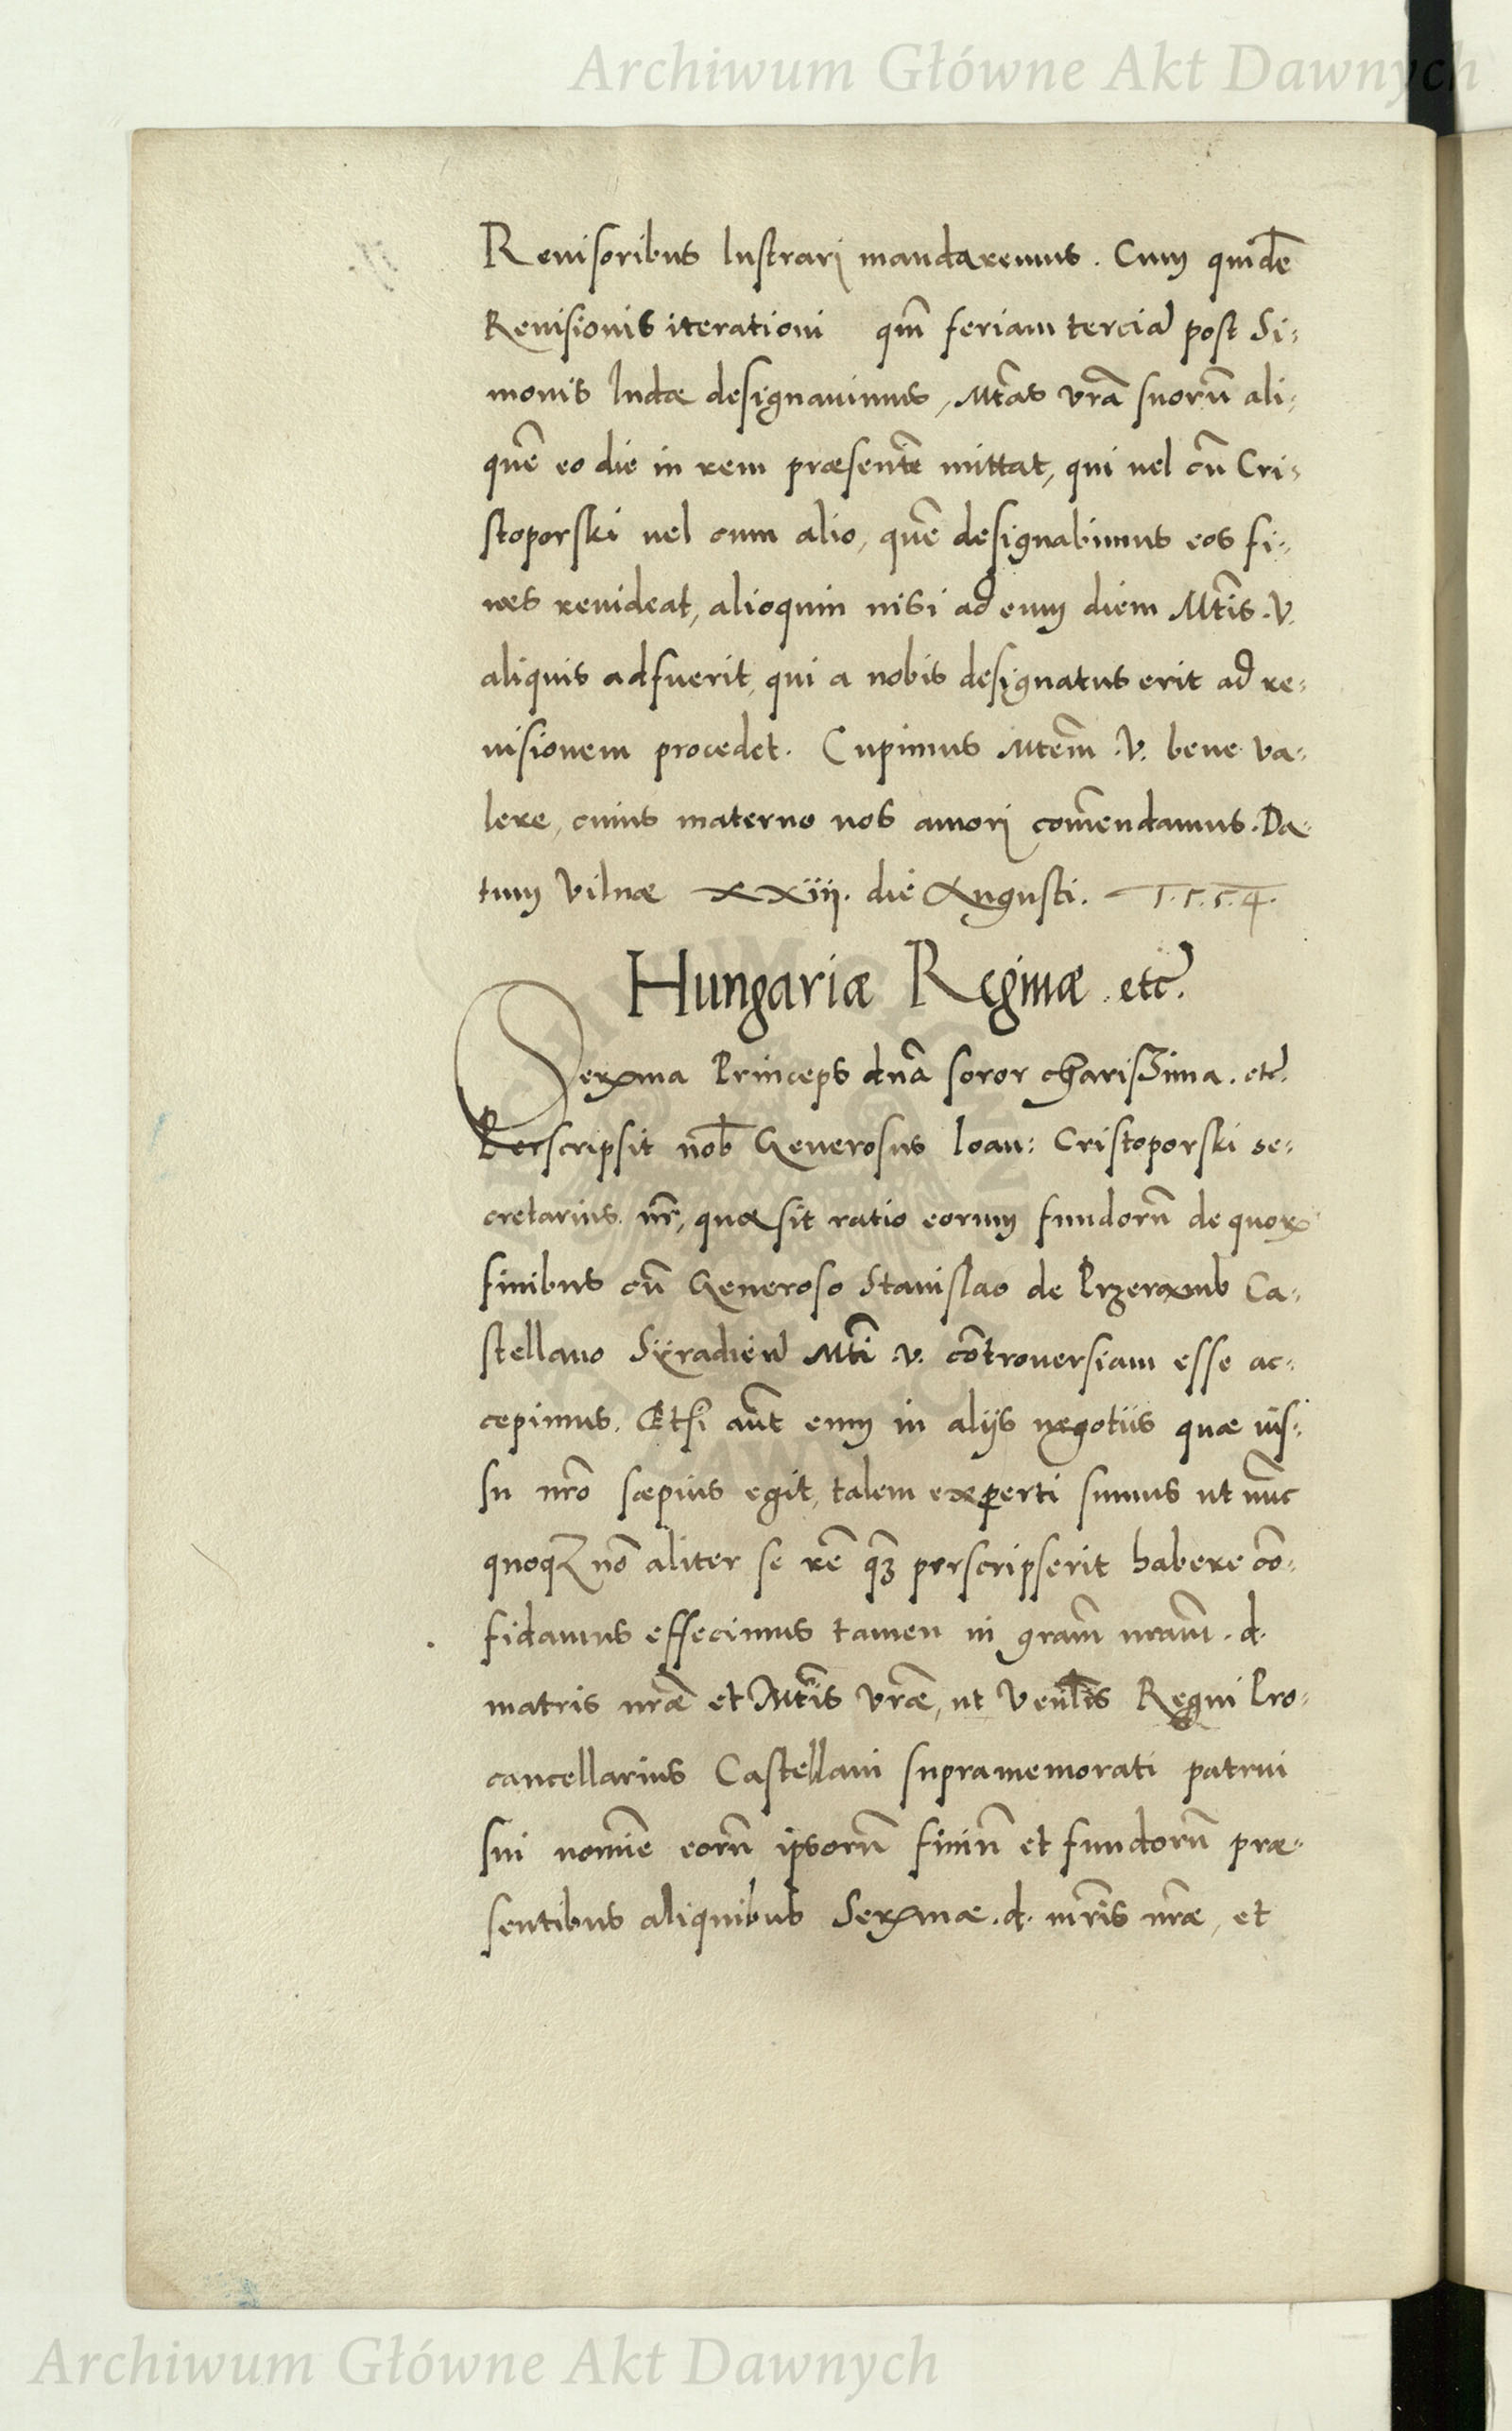 Archiwum Główne Akt Dawnych
Reuisoribus lustrari mandaremus. Cum quidẽ
Reuisionis iterationi qm̃ feriam terciã post Si-
monis Iudæ designauimus, Mtãs vrã suorũ ali-
quẽ eo die in rem præsentẽ mittat, qui uel cũ Cri-
stoporski uel cum alio, quẽ designabimus eos fi-
nes reuideat, alioquin nisi ad eum diem Mtĩs .V.
aliquis adfuerit, qui a nobis designatus erit ad re-
uisionem procedet. Cupimus Mtem̃ .V. bene va-
lere, cuius materno nos amori com̃endamus. Da-
tum Vilnæ XXiij. die Augusti. 1.5.5.4.
Hungariæ Reginæ .etc.
Serxma Princeps dnã soror charissima. etc.
Perscripsit nob̃ Generosus Ioan: Cristoporski se-
cretarius nr̃, quæ sit ratio eorum fundorũ de quoꝝ
finibus cũ Generoso Stanislao de Przeramb Ca-
stellano Syradieñ Mtĩ .v. cõtrouersiam esse ac-
cepimus. Etsi aũt eum in alijs negotiis quæ ius-
su nrõ sæpius egit, talem experti sumus ut nũc
quoqꝫ nõ aliter se rẽ qꝫ perscripserit habere cõ-
fidamus effecimus tamen in gram̃ mram̃ .d.
matris nræ̃ et Mtĩs Vræ̃, ut Venl̃is Regni Pro-
cancellarius Castellani supramemorati patrui
sui nomiẽ eorũ ipsorũ finiũ et fundorũ præ-
sentibus aliquibus Serxmæ .d. mr̃is nr̃æ, et
Archiwum Główne Akt Dawnych